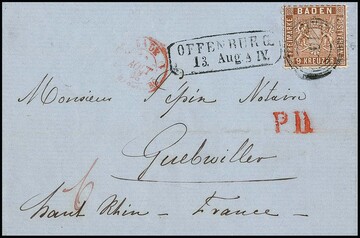 BADEN
FREIMARKE
POSTVEREIN
9 KREUZER
OFFENBURG
13 Aug A IV.
Monsieur Pépin Notaire
P.D.
Guebwiller
haut Rhin - France -